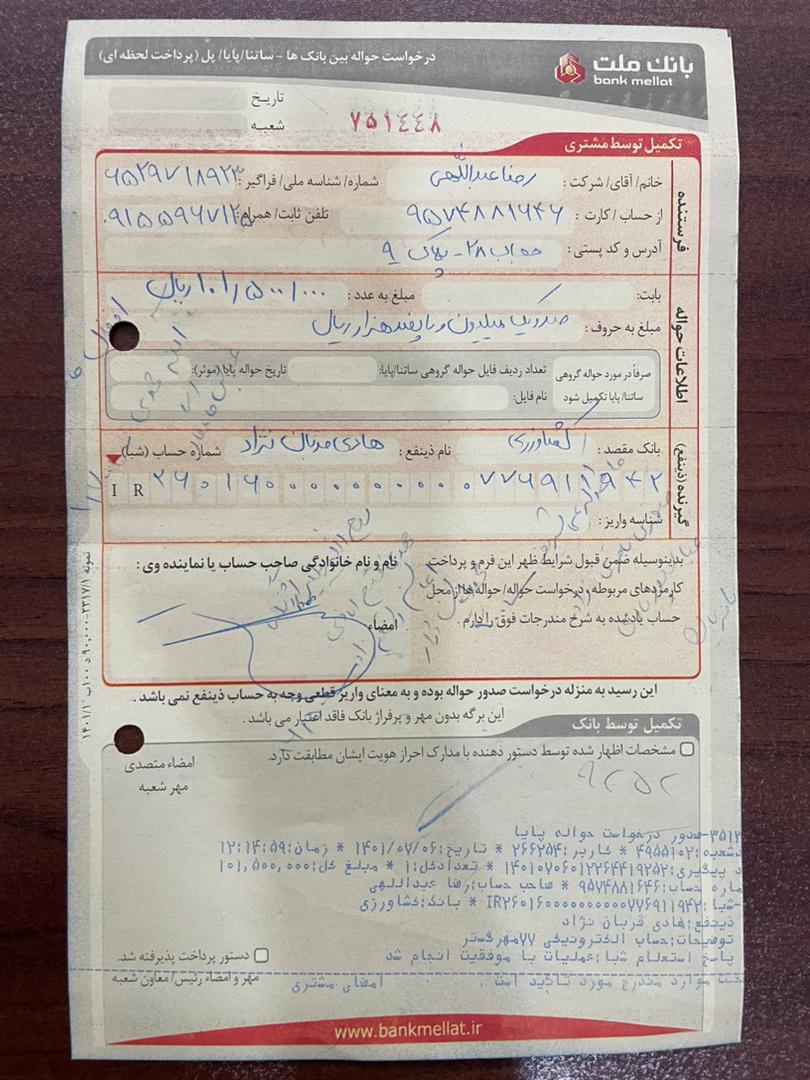 بانک ملت
bank mellat
درخواست حواله بین بانک ها - ساتنا/پایا/ پل (پرداخت لحظه ای)
تاریخ
شعبه
۷۵۱۴۴۸
تکمیل توسط مشتری
فرستنده
خانم/ آقای/ شرکت : رضا عبداللهی شماره/ شناسه ملی/ فراگیر : ۶۵۲۹۷۱۸۹۲۳
از حساب/ کارت : ۹۵۷۴۸۸۱۶۴۶ تلفن ثابت/ همراه :
آدرس و کد پستی : ۲۸ - پلاک ۹
اطلاعات حواله
بابت: مبلغ به عدد : ۱۰۱/۵۰۰/۰۰۰ ریال
مبلغ به حروف : صد و یک میلیون و پانصد هزار ریال
صرفاً در مورد حواله گروهی ساتنا/ پایا تکمیل شود
تعداد ردیف فایل حواله گروهی ساتنا/پایا: تاریخ حواله پایا (موثر):
نام فایل:
گیرنده (ذینفع)
بانک مقصد : کشاورزی نام ذینفع : هادی قربان نژاد شماره حساب (شبا)
IR ۲۶۰۱۶۰۰۰۰۰۰۰۰۰۰۰۷۷۶۹۱۱۹۴۲
شناسه واریز :
بدینوسیله ضمن قبول شرایط ظهر این فرم و پرداخت
کارمزدهای مربوطه، درخواست حواله/ حواله ها از محل
حساب یادشده به شرح مندرجات فوق را دارم .
نام و نام خانوادگی صاحب حساب یا نماینده وی :
امضاء
این رسید به منزله درخواست صدور حواله بوده و به معنای واریز قطعی وجه به حساب ذینفع نمی باشد .
این برگه بدون مهر و پرفراژ بانک فاقد اعتبار می باشد .
تکمیل توسط بانک
مشخصات اظهار شده توسط دستور دهنده با مدارک احراز هویت ایشان مطابقت دارد.
امضاء متصدی
مهر شعبه
۹۲۵۲
۳۵۱۲-صدور درخواست حواله پایا
شعبه:۴۹۵۵۱۰۲ * کاربر:۲۶۶۲۵۴ * تاریخ:۱۴۰۱/۰۷/۰۶ * زمان:۱۲:۱۴:۵۹
د پیگیری:۱۴۰۱۰۷۰۶۰۱۲۲۶۴۴۱۹۲۵۲ * تعدادکل:۱ * مبلغ کل:۱۰۱,۵۰۰,۰۰۰
ماره حساب:۹۵۷۴۸۸۱۶۴۶ * صاحب حساب:رضا عبداللهی
شبا:IR۲۶۰۱۶۰۰۰۰۰۰۰۰۰۰۰۷۷۶۹۱۱۹۴۲ * بانک:کشاورزی
ذینفع:هادی قربان نژاد
توضیحات:حساب الکترونیکی ۷۷مهرگستر
پاسخ استعلام شبا:عملیات با موفقیت انجام شد
صحت موارد مندرج مورد تائید است . امضای مشتری
دستور پرداخت پذیرفته شد.
مهر و امضاء رئیس/ معاون شعبه
www.bankmellat.ir